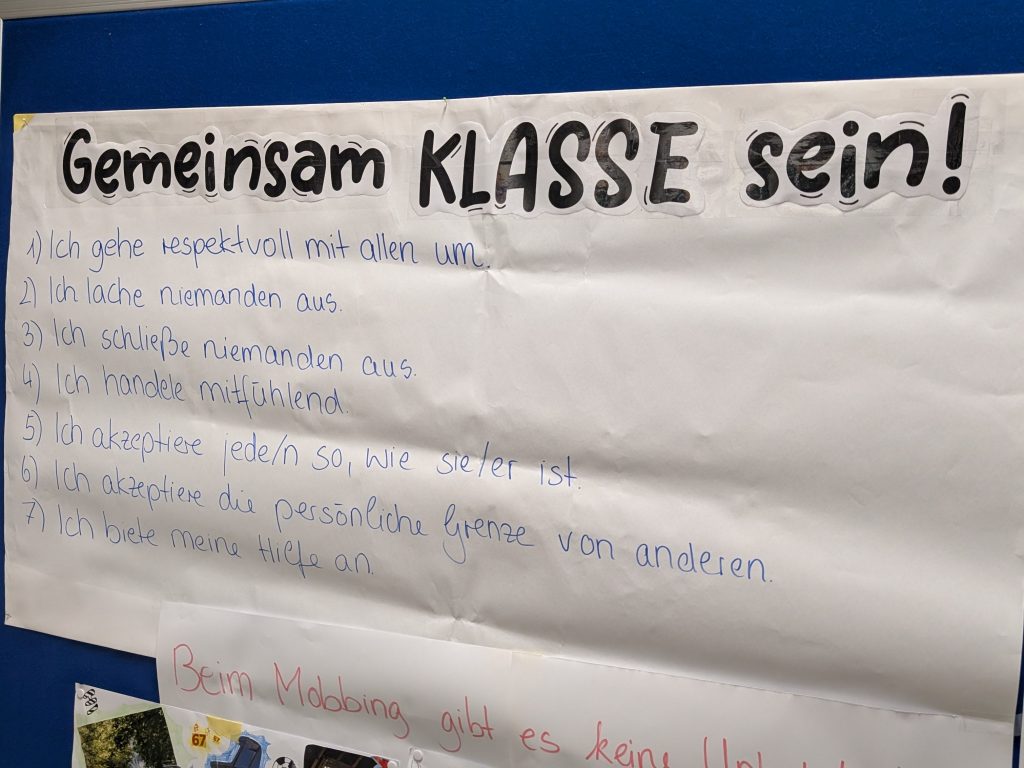 Gemeinsam KLASSE sein!
1) Ich gehe respektvoll mit allen um.
2) Ich lache niemanden aus.
3) Ich schließe niemanden aus.
4) Ich handele mitfühlend.
5) Ich akzeptiere jede/n so, wie sie/er ist.
6) Ich akzeptiere die persönliche Grenze von anderen.
7) Ich biete meine Hilfe an.
Beim Mobbing gibt es keine
67